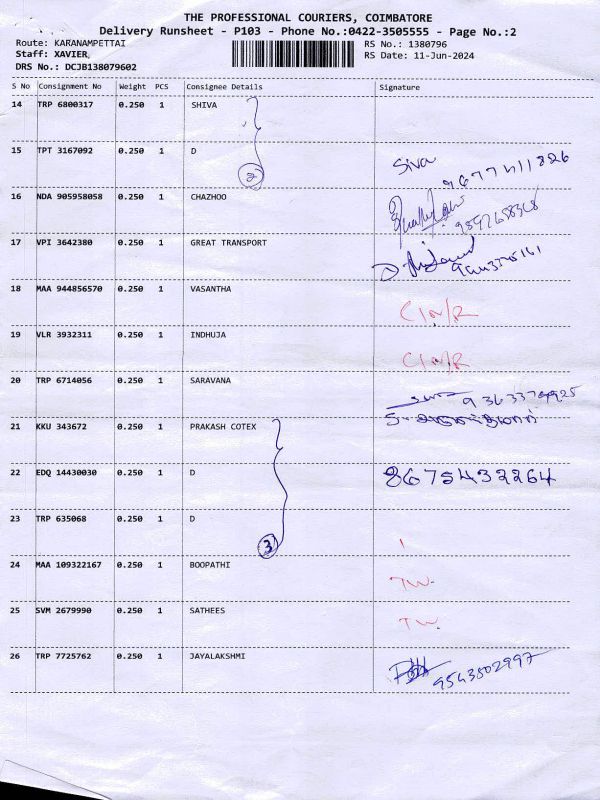 THE PROFESSIONAL COURIERS, COIMBATORE
Delivery Runsheet - P103 - Phone No.:0422-3505555 - Page No.:2
Route: KARANAMPETTAI RS No.: 1380796
Staff: XAVIER, RS Date: 11-Jun-2024
DRS No.: DCJB138079602
S No Consignment No Weight PCS Consignee Details Signature
14 TRP 6800317 0.250 1 SHIVA
15 TPT 3167092 0.250 1 D Siva
2
16 NDA 905958058 0.250 1 CHAZHOO
17 VPI 3642380 0.250 1 GREAT TRANSPORT
18 MAA 944856570 0.250 1 VASANTHA
19 VLR 3932311 0.250 1 INDHUJA
20 TRP 6714056 0.250 1 SARAVANA
21 KKU 343672 0.250 1 PRAKASH COTEX
22 EDQ 14430030 0.250 1 D 8675432264
23 TRP 635068 0.250 1 D
3
24 MAA 109322167 0.250 1 BOOPATHI TW.
25 SVM 2679990 0.250 1 SATHEES TW.
26 TRP 7725762 0.250 1 JAYALAKSHMI 9543502997